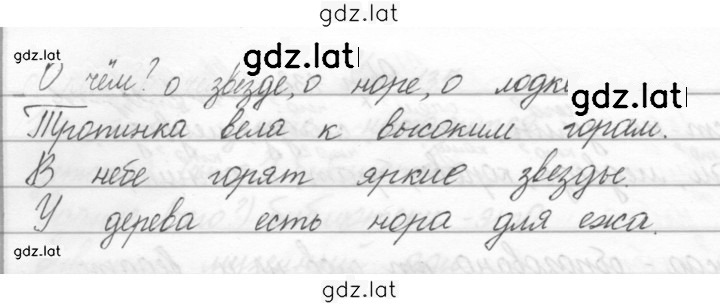 gdz.lat
gdz.lat
gdz.lat
О чём? о звезде, о норе, о
gdz.lat
Тропинка вела к высоким горам.
В небе горят яркие звезды.
У дерева есть нора для ежа.
gdz.lat
gdz.lat